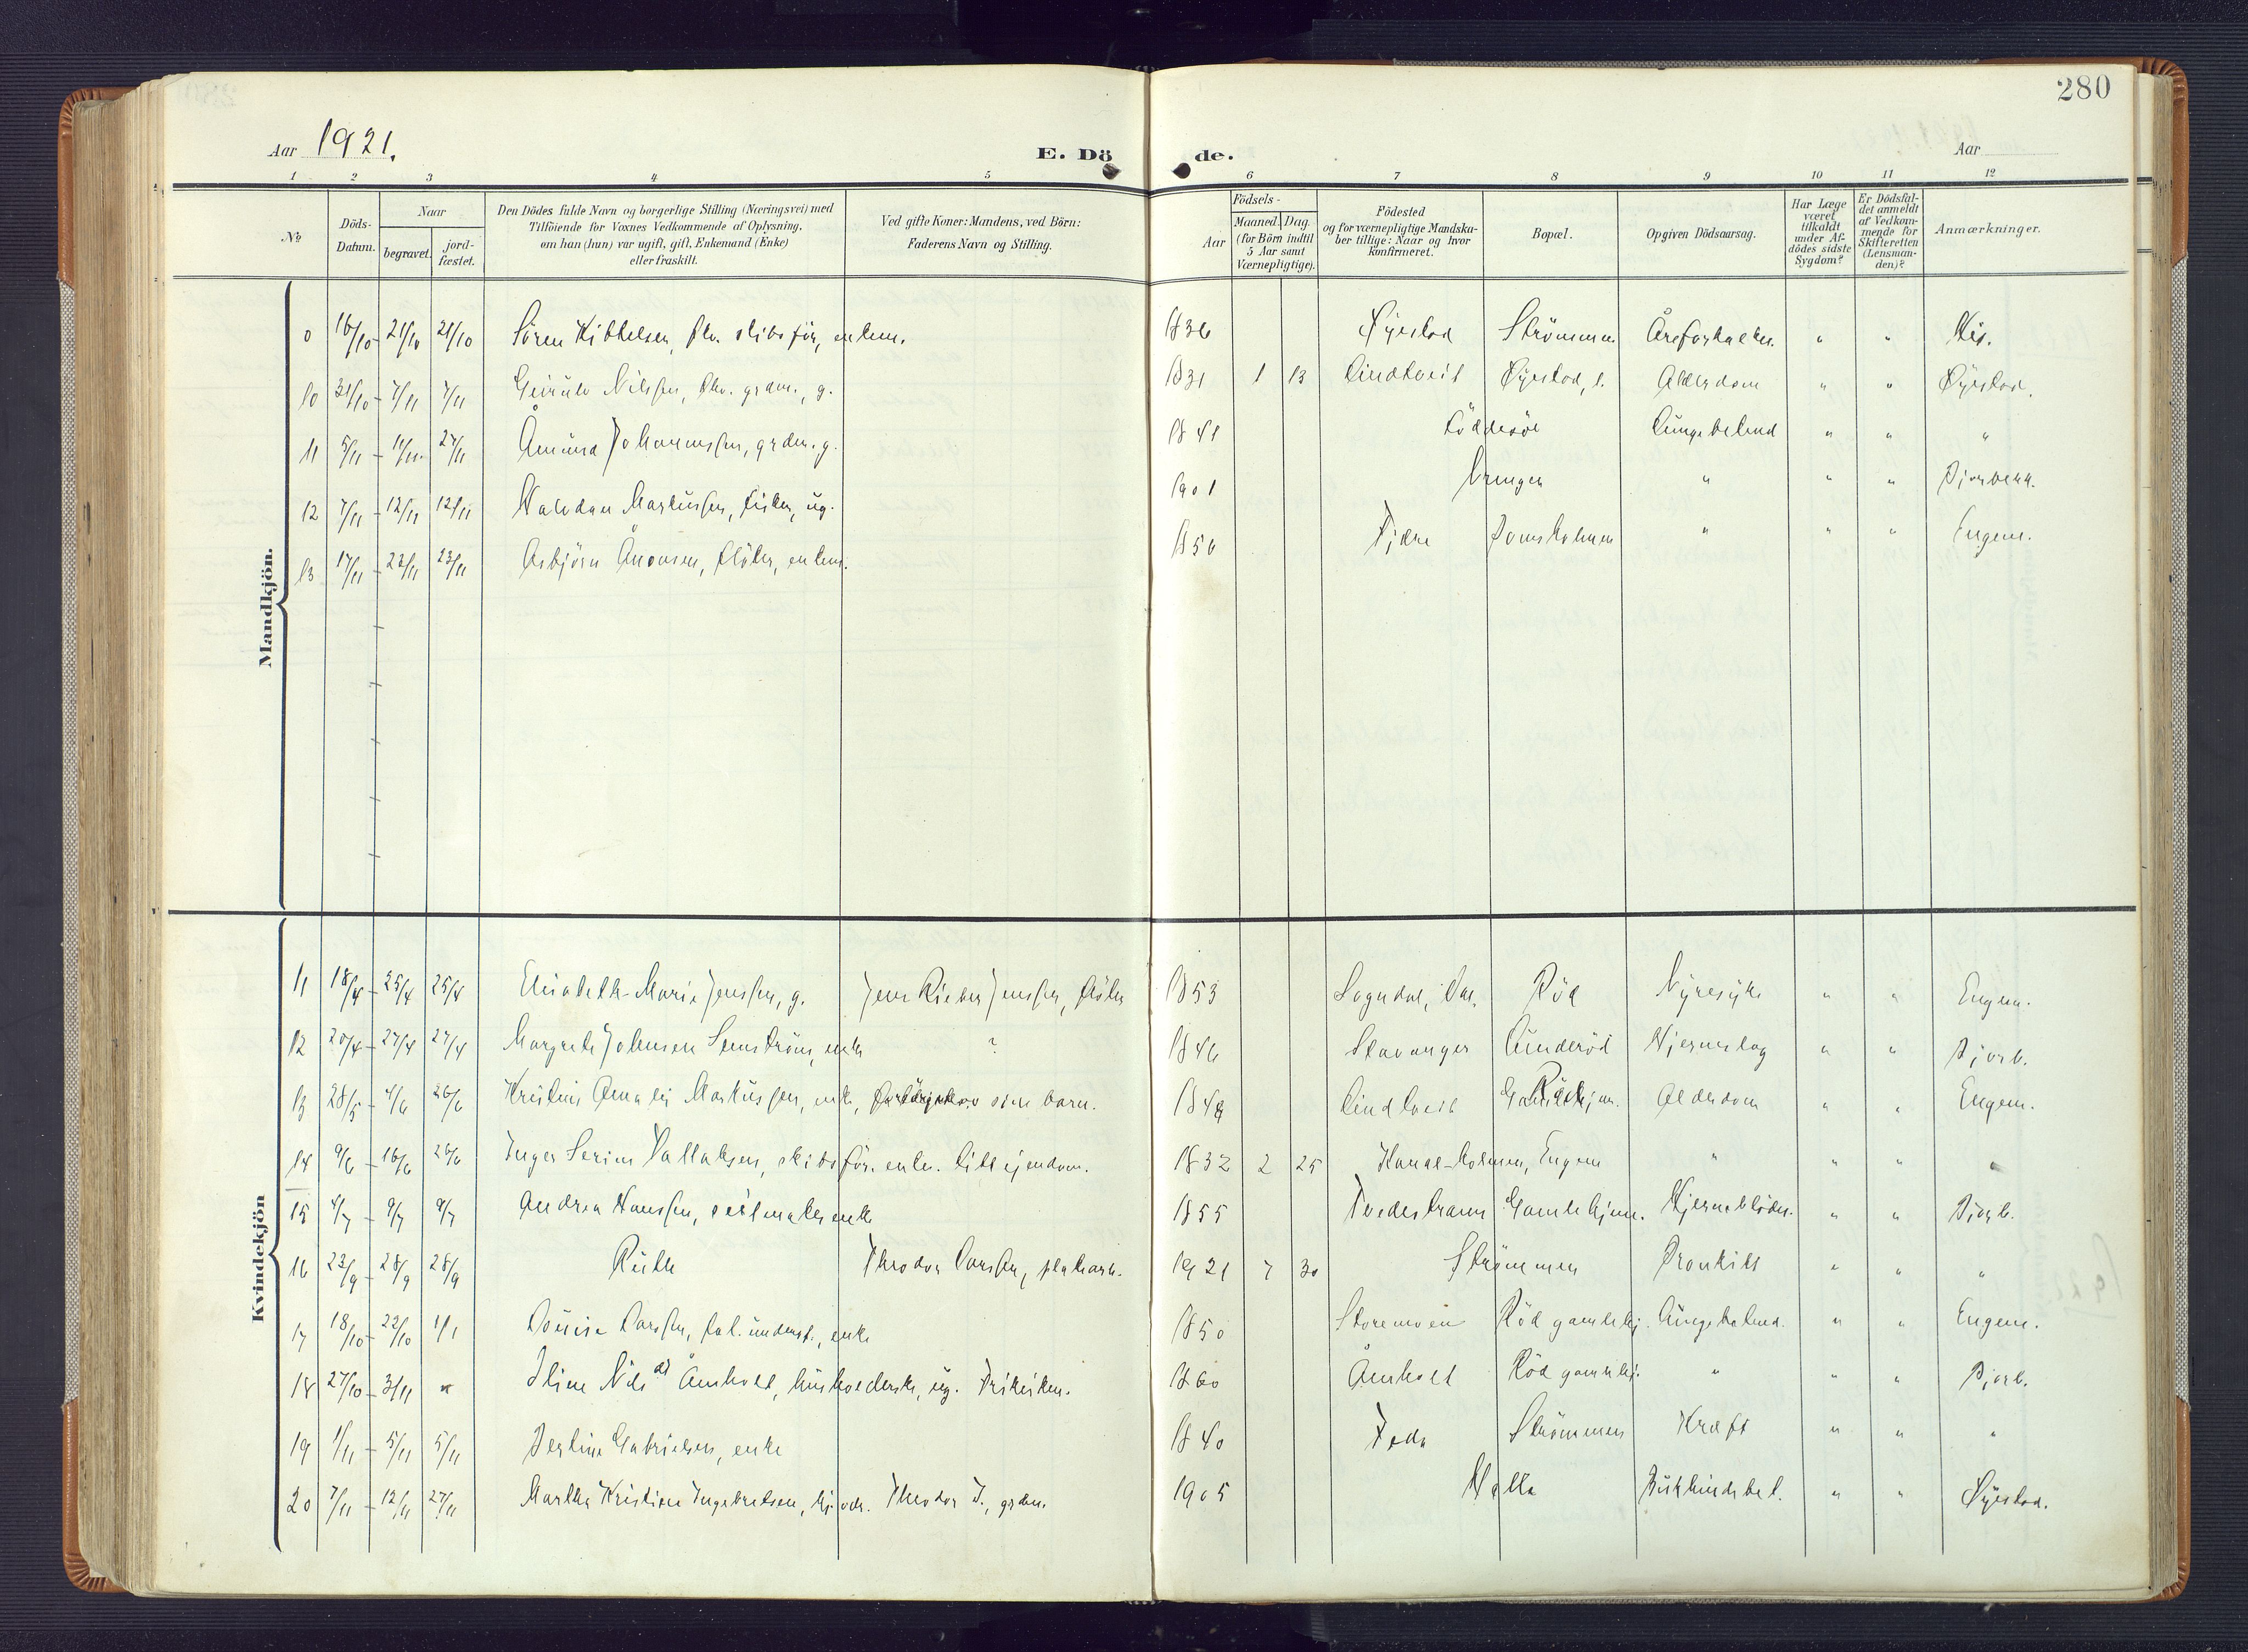 280
Aar 1921.
E. Dö de.
Aar
1 2 3 4 5 6 7 8 9 10 11 12
No
Döds-Datum.
Naar
begravet.
jord-fæstet.
Den Dödes fulde Navn og borgerlige Stilling (Næringsvei) med
Tilföiende for Voxnes Vedkommende af Oplysning,
om han (hun) var ugift, gift, Enkemand (Enke)
eller fraskilt.
Ved gifte Koner: Mandens, ved Börn:
Faderens Navn og Stilling.
Födsels-
Aar
Maaned. Dag.
(for Börn indtil
5 Aar samt
Værnepligtige).
Födested
og for værnepligtige Mandska-
ber tillige: Naar og hvor
konfirmeret.
Bopæl.
Opgiven Dödsaarsag.
Har Læge
været
tilkaldt
under Af-
dödes sidste
Sygdom?
Er Dödsfal-
det anmeldt
af Vedkom-
mende for
Skifteretten
(Lensman-
den)?
Anmærkninger.
Mandkjön.
16/10 21/10 21/10 Sören Kittelsen, skibsför, enkem. 1836 Öyestad Strömmen Åreforkalkn. " " His.
10 31/10 7/11 7/11 Nilssen, grdm., g. 1831 1 13 Lindtveit Öyestad, Alderdom " " Öyestad.
11 5/11 11/11 27/11 Åmund Johannessen, grdm. g. 1841 Löddesöl Lungebetend " " "
12 7/11 12/11 12/11 Halvdan Markussen, fisker, ug. 1901 Vrengen " " " Bjorbekk.
13 17/11 23/11 23/11 Asbjörn Ånonsen, flöter, enkem. 1856 Fjære Jomsholmen " " " Engene.
Kvindekjön
11 18/4 25/4 25/4 Elisabeth Marie Jenssen, g. Jens Rieber Jenssen, flöter 1853 Sogndal, Dal. Röd Nyresyke " " Engene.
12 20/4 27/4 27/4 Margrete Johnsen Semströms, enke ? 1846 Stavanger Lunderöd Hjerneslag " " Bjorb.
13 28/5 4/6 26/6 Kristine Amalie Markussen, enke, forsörges av sine barn. 1849 Lindtveit Alderdom " " Engene.
14 9/6 16/6 26/6 Inger Serine Vallaksen, skibsför. enke. litt eiendom. 1832 2 25 Kanalholmen, Engene " " " "
15 4/7 9/7 9/7 Andrea Hanssen, seilmakerenke 1855 Tvedestrand Gamlehjem. Hjerneblödn. " " Bjorb.
16 23/9 28/9 28/9 Ruth Theodor Larssen, 1921 7 30 Strömmen Bronkitt " " "
17 18/10 22/10 1/1 Louise Larssen, fat. underst., enke 1850 Storemoen Röd gamlehj. Lungebetend. " " Engene.
18 27/10 3/11 " Stine Nilsdt Åmholt, husholderske, ug. 1860 Åmholt Röd gamlehj. " " " Bjorb.
19 1/11 5/11 5/11 Gabrielsen, enke 1840 Feda Strömmen Kræft " " "
20 7/11 12/11 27/11 Martha Kristine Ingebretsen, hj. vær. Theodor I., grdm. 1905 Bukhindebet. " " Öyestad.